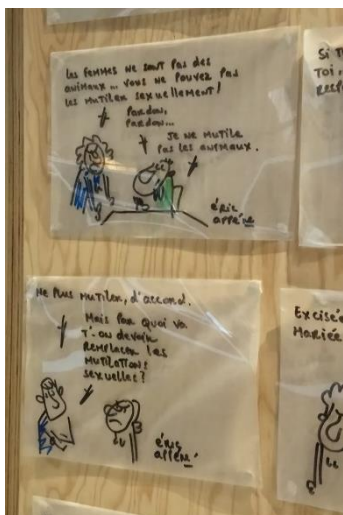 Les femmes ne sont pas des
animaux... vous ne pouvez pas
les mutiler sexuellement!
Pardon,
pardon...
Je ne mutile
pas les animaux.
éric
appéré
Si T
Toi,
Resp
Ne plus mutiler, d'accord.
Mais par quoi va
t'-on devoir
remplacer les
mutilations
sexuelles?
éric
appéré
Excisé
Mariée